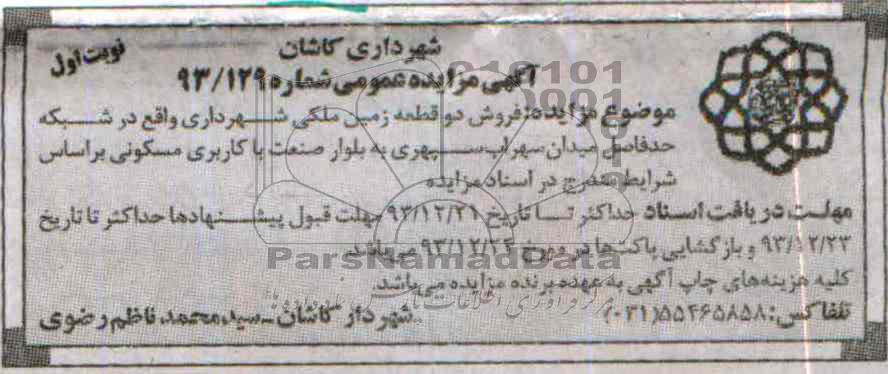 نوبت اول
شهرداری کاشان
آگهی مزایده عمومی شماره ۹۳/۱۲۹
موضوع مزایده: فروش دو قطعه زمین ملکی شهرداری واقع در شبکه
حدفاصل میدان سهراب سپهری به بلوار صنعت با کاربری مسکونی براساس
شرایط مندرج در اسناد مزایده
مهلت دریافت اسناد حداکثر تا تاریخ ۹۳/۱۲/۲۱ مهلت قبول پیشنهادها حداکثر تا تاریخ
۹۳/۱۲/۲۳ و بازگشایی پاکت‌ها در مورخ ۹۳/۱۲/۲۴ می‌باشد.
کلیه هزینه‌های چاپ آگهی به عهده برنده مزایده می‌باشد.
تلفاکس: ۵۵۴۶۵۸۵۸(۰۳۱)
شهردار کاشان - سید محمد ناظم رضوی
ParsNamadData